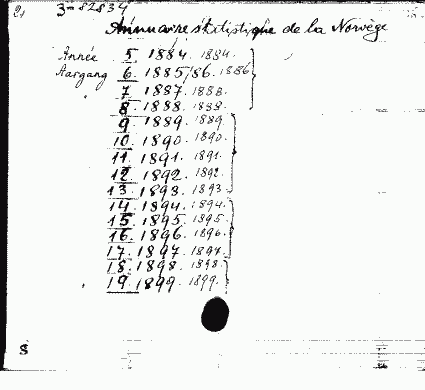 21 3= 82834
Annuaire statistique de la Norvège
Année 5 1884. 1884.
Aargang 6. 1885/86. 1886
7 1887. 1888.
8. 1888. 1888.
9. 1889. 1889.
10. 1890. 1890.
11. 1891. 1891.
12. 1892. 1892.
13. 1893. 1893.
14. 1894. 1894.
15. 1895. 1895.
16. 1896. 1896.
17. 1897. 1897.
18. 1898. 1898.
19. 1899. 1899.
S